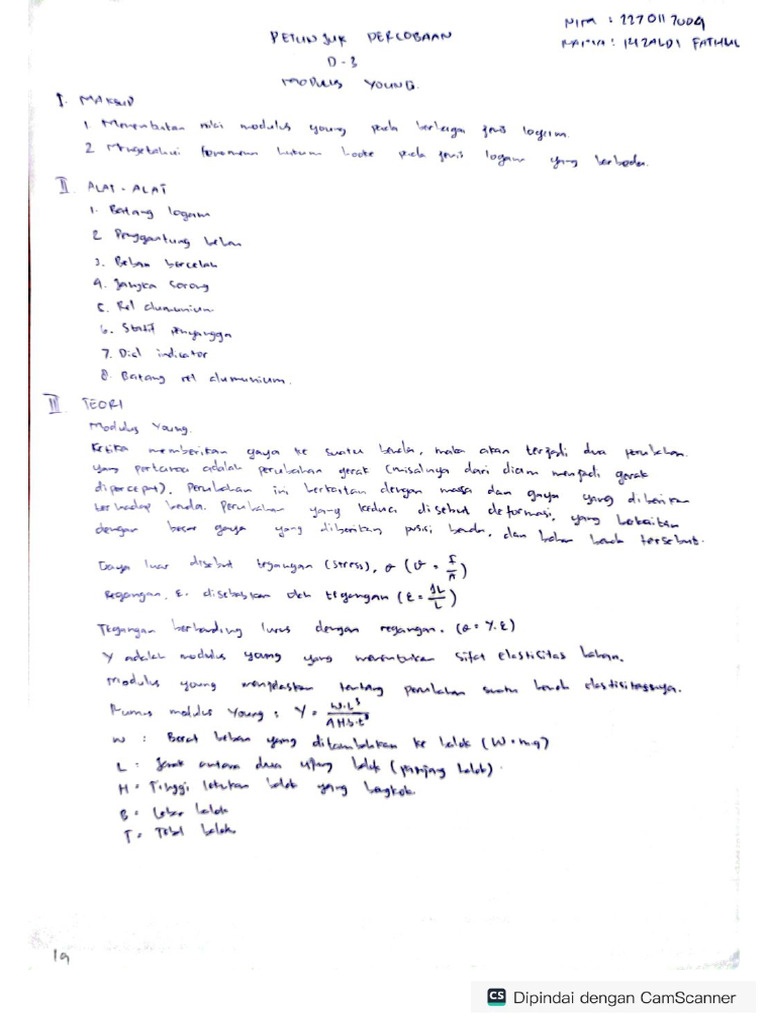 NIM : 2270117009
PETUNJUK PERCOBAAN
NAMA : RIZALDI FATHUL
D-3
MODULUS YOUNG.
I. MAKSUD
1. Menentukan nilai modulus young pada berbagai jenis logam.
2 Mengetahui fenomena hukum hooke pada jenis logam yang berbeda.
II ALAT-ALAT
1. Batang logam
2 Penggantung beban
3. Beban bercelah
4. Jangka sorong
5. Rel alumunium.
6. Statif penyangga
7. Dial indicator
8 Batang rel alumunium.
III TEORI
Modulus Young.
Ketika memberikan gaya ke suatu benda, maka akan terjadi dua perubahan.
yang pertama adalah perubahan gerak (misalnya dari diam menjadi gerak
dipercepat). Perubahan ini berkaitan dengan massa dan gaya yang diberikan
terhadap benda. Perubahan yang kedua disebut deformasi, yang berkaitan
dengan besar gaya yang diberikan, posisi benda, dan bahan benda tersebut.
Gaya luar disebut tegangan (stress), σ (σ = F/A)
Regangan, ε. disebabkan oleh tegangan (ε = ΔL/L)
Tegangan berbanding lurus dengan regangan. (σ = Y.ε)
Y adalah modulus young yang menentukan sifat elastisitas bahan.
Modulus young menjelaskan tentang perubahan suatu benda elastisitasnya.
Rumus modulus Young : Y = W.L³/4Hb.t³
W : Berat beban yang ditambahkan ke balok (W = m.g)
L : Jarak antara dua ujung balok (panjang balok).
H = Tinggi lekukan balok yang bengkok.
B = Lebar balok
T = Tebal balok
19
CS Dipindai dengan CamScanner